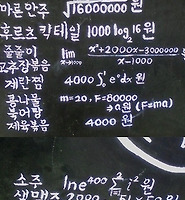 마른안주 √16000000 원
후르츠칵테일 1000 log₂16 원
쥴쥴이
고추잡볶음 lim x→1000 x²+2000x-3000000 / x-1000 원
계란찜 4000 ∫₀¹ eˣdx 원
콩나물 m=20, F=80000
불어밥 → a원 (F=ma)
제육볶음 4000 원
소주 lne⁴⁰⁰ i² 원
생맥주